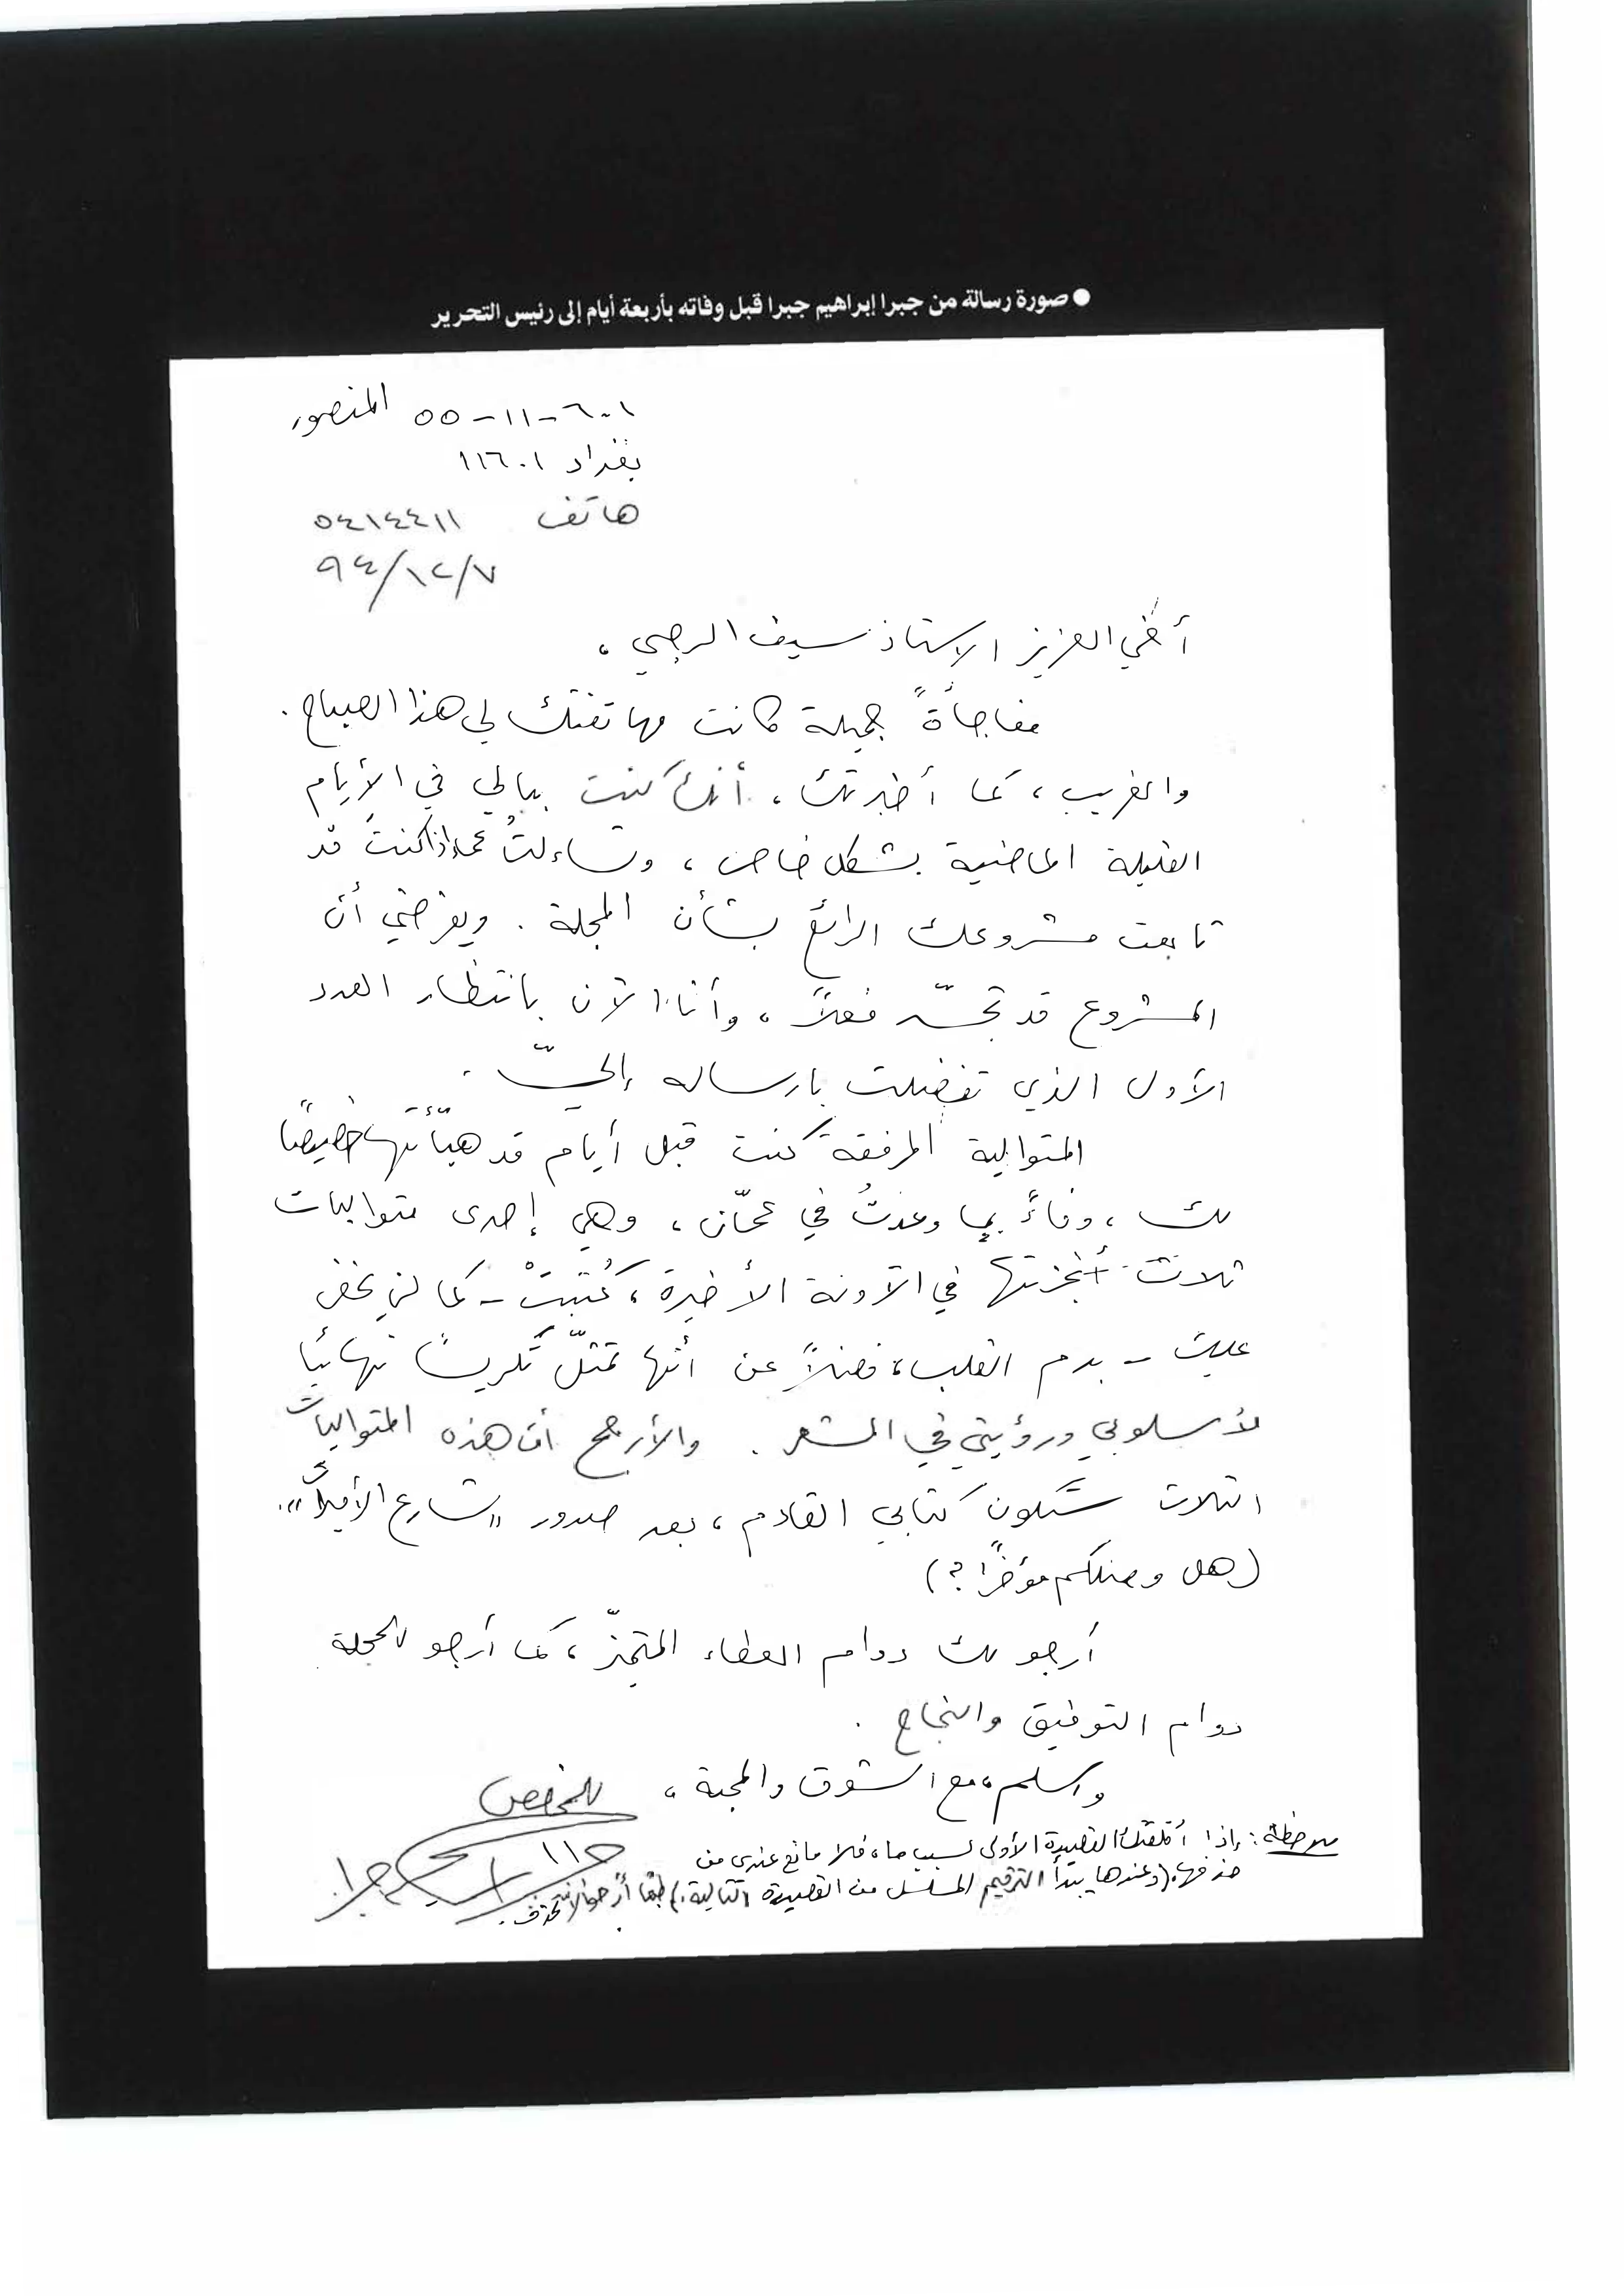 ● صورة رسالة من جبرا إبراهيم جبرا قبل وفاته بأربعة أيام إلى رئيس التحرير
٦٠١-١١-٥٥ المنصور
بغداد ١١٦٠١
هاتف ٥٤١٤٤١١
٩٤/١٢/٧
أخي العزيز الاستاذ سيف الرحبي ،
مفاجأةً جميلة كانت مهاتفتك لي هذا الصباح .
والغريب ، كما أخبرتك ، أنك كنت ببالي في الأيام
القليلة الماضية بشكل خاص ، وتساءلتُ عما إذا كنتَ قد
تابعت مشروعك الرائع بشأن المجلة . ويفرحني أن
المشروع قد تجسّد فعلاً ، وأنا الآن بانتظار العدد
الأول الذي تفضلت بارساله إليّ .
المتوالية المرفقة كنت قبل أيام قد هيّأتها خصيصًا
لك ، وفاءً بما وعدتُ في عمّان ، وهي إحدى متواليات
ثلاث أنجزتها في الآونة الأخيرة ، كُتبَتْ - كما لن يخفى
عليك - بدم القلب ، فضلاً عن أنها تمثّل تكريسًا نهائيًا
لأسلوبي ورؤيتي في الشعر . والأرجح أن هذه المتواليات
الثلاث ستكون كتابي القادم ، بعد صدور "شارع الأميرات" .
(هل وصلكم مؤخرًا ؟)
أرجو لك دوام العطاء المتميّز ، كما أرجو للمجلة
دوام التوفيق والنجاح .
واسلم ، مع الشوق والمحبة ،
المخلص
جبرا ابراهيم جبرا
ملاحظة : إذا أقلقتك القصيدة الأولى لسبب ما ، فلا مانع عندي من
حذفها . (وعندها يبدأ الترقيم المسلسل من القصيدة التالية .) طبعًا أرجو ألا تحذف .